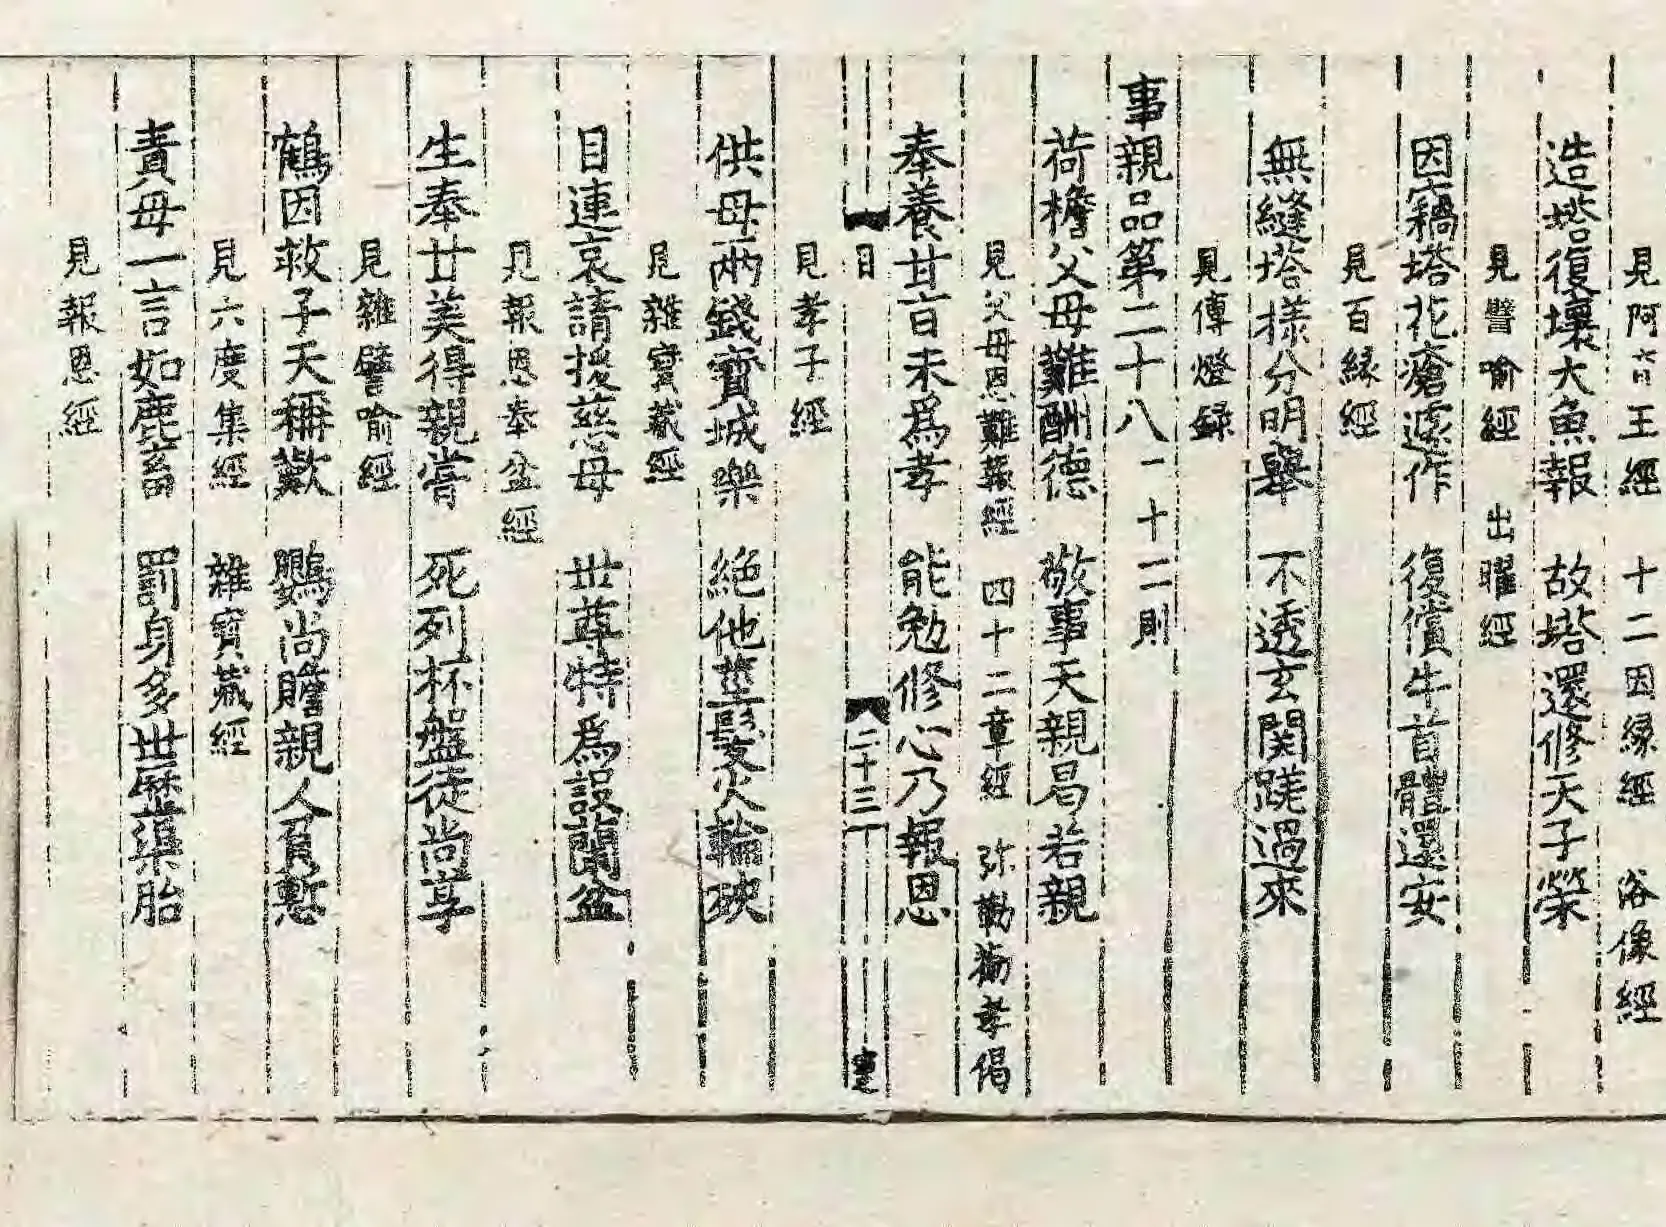 見阿育王經　十二因縁經　浴像經
造塔復壞大魚報　故塔還修天子榮
見譬喻經　出曜經
因竊塔花瘡遽作　復償牛首體還安
見百緣經
無縫塔樣分明舉　不透玄関蹉過來
見傳燈録
事親品第二十八　一十二則
荷檐父母難酬德　敬事天親曷若親
見父母恩難報經　四十二章經　弥勒孝偈
奉養甘旨未爲孝　能勉修心乃報恩
目　二十三
見孝子經
供母兩錢寳城樂　絕他莖髮火輪殃
見雜寳藏經
目連哀請援慈母　世尊特爲設蘭盆
見報恩奉盆經
生奉甘美得親嘗　死列杯盤徒尚享
見雜譬喻經
鶴因救子天稱歎　鸚尚贍親人負慙
見六度集經　雜寳藏經
責母一言如鹿畜　罰身多世歷渠胎
見報恩經